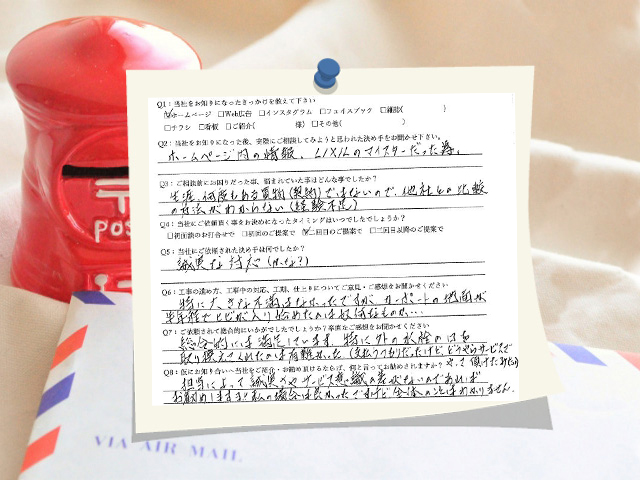 Q1：当社をお知りになったきっかけを教えて下さい
☑ホームページ □Web広告 □インスタグラム □フェイスブック □雑誌( )
□チラシ □看板 □ご紹介( 様) □その他( )
Q2：当社をお知りになった後、実際にご相談してみようと思われた決め手をお聞かせ下さい。
ホームページ内の情報、LIXILのマイスターだった為。
Q3：ご相談前にお困りだった事、悩まれていた事はどんな事でしたか？
生涯、何度もある買物(契約)ではないので、他社との比較
の方法がわからない(経験不足)
Q4：当社にご依頼頂く事をお決めになったタイミングはいつでしたでしょうか？
□初面談のお打合せで □初回のご提案で ☑二回目のご提案で □二回目以降のご提案で
Q5：当社にご依頼された決め手は何でしたか？
誠実な対応(かな？)
Q6：工事の進め方、工事中の対応、工期、仕上りについてご意見・ご感想をお聞かせください
特に大きな不満はなかったですが カーポートの地面が
半年程でヒビが入り始めたのは
Q7：ご依頼されて総合的にいかがでしたでしょうか？率直なご感想をお聞かせください
総合的には満足しています。特に外の水栓の
取り換えてくれたのは有難かった
Q8：仮にお知り合いへ当社をご紹介・お勧め頂けるならば、何と言ってお勧めされますか？
担当によって誠実さやサービス意識の差がないのであれば
お勧めします！私の場合は良かったですけど全体の
POS
VIA AIR MAIL